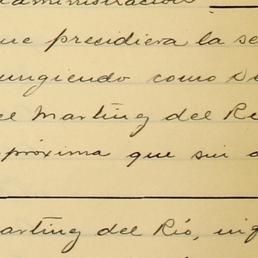 administración
que presidiera la se
ungiendo como se
el Martinz del Re
próxima que sin
artinz del Río, ing